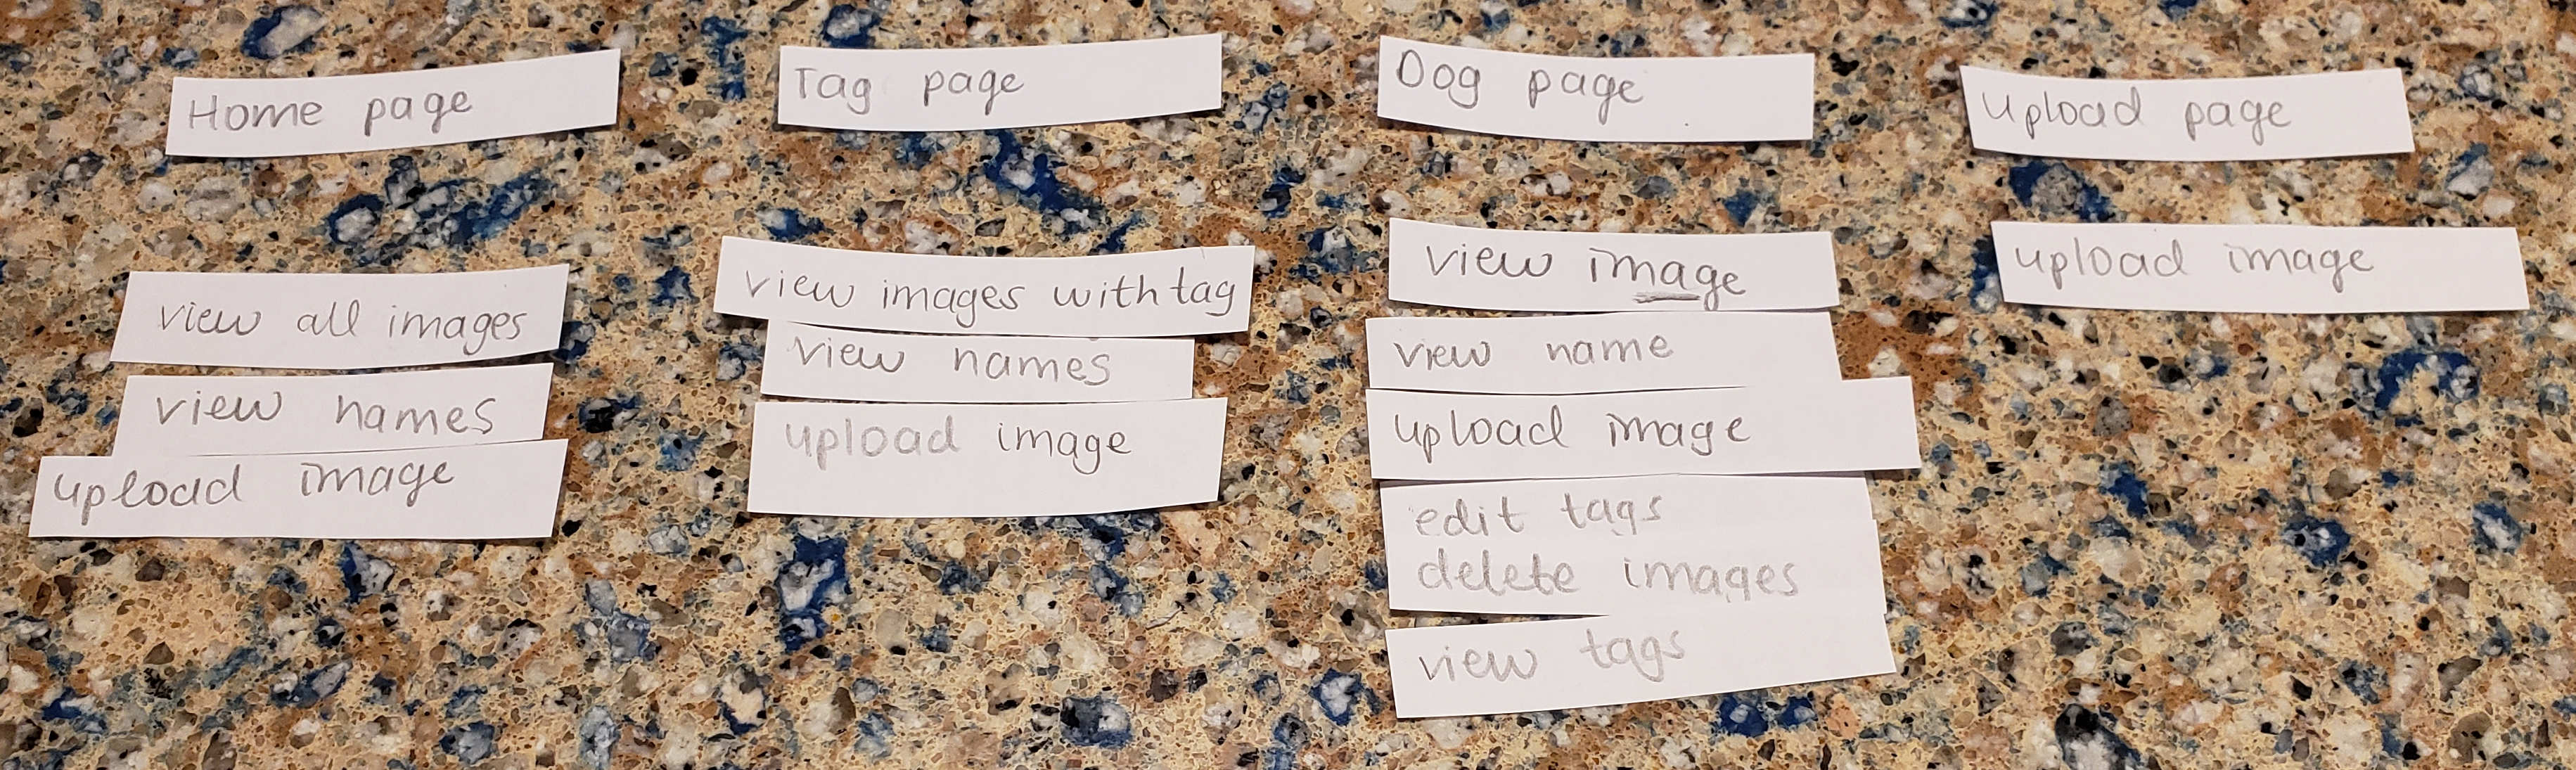 Home page
view all images
view names
upload image
Tag page
view images with tag
view names
upload image
Dog page
view image
view name
upload image
edit tags
delete images
view tags
upload page
upload image